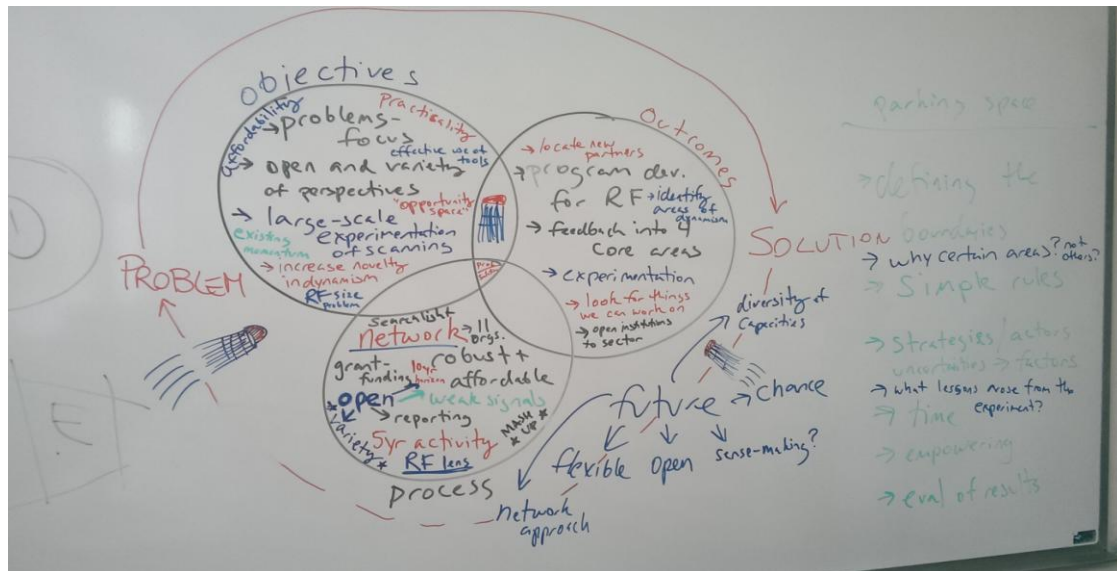 objectives
affordability
Practicality
→ problems-
focus
effective use of
tools
→ open and variety
of perspectives
"opportunity
space"
→ large-scale
experimentation
of scanning
existing
momentum
→ increase novelty
in dynamism
RF size
problem
Outcomes
→ locate new
partners
→ program dev.
for RF
→ identify
areas of
dynamism
→ feedback into 4
core areas
→ experimentation
→ look for things
we can work on
→ open institutions
to sector
searchlight
network
→ 11
orgs.
grant-
funding
robust +
10yr
horizon
affordable
open
→ weak signals
→ reporting
* variety *
5yr activity
* MASH
UP *
RF lens
process
PROBLEM
SOLUTION
diversity of
capacities
future
→ chance
flexible
open
sense-making?
network
approach
parking space
→ defining the
boundaries
→ why certain areas? not
others?
→ Simple rules
→ strategies/actors
uncertainties → factors
→ what lessons arose from the
experiment?
→ time
→ empowering
→ eval of results
E